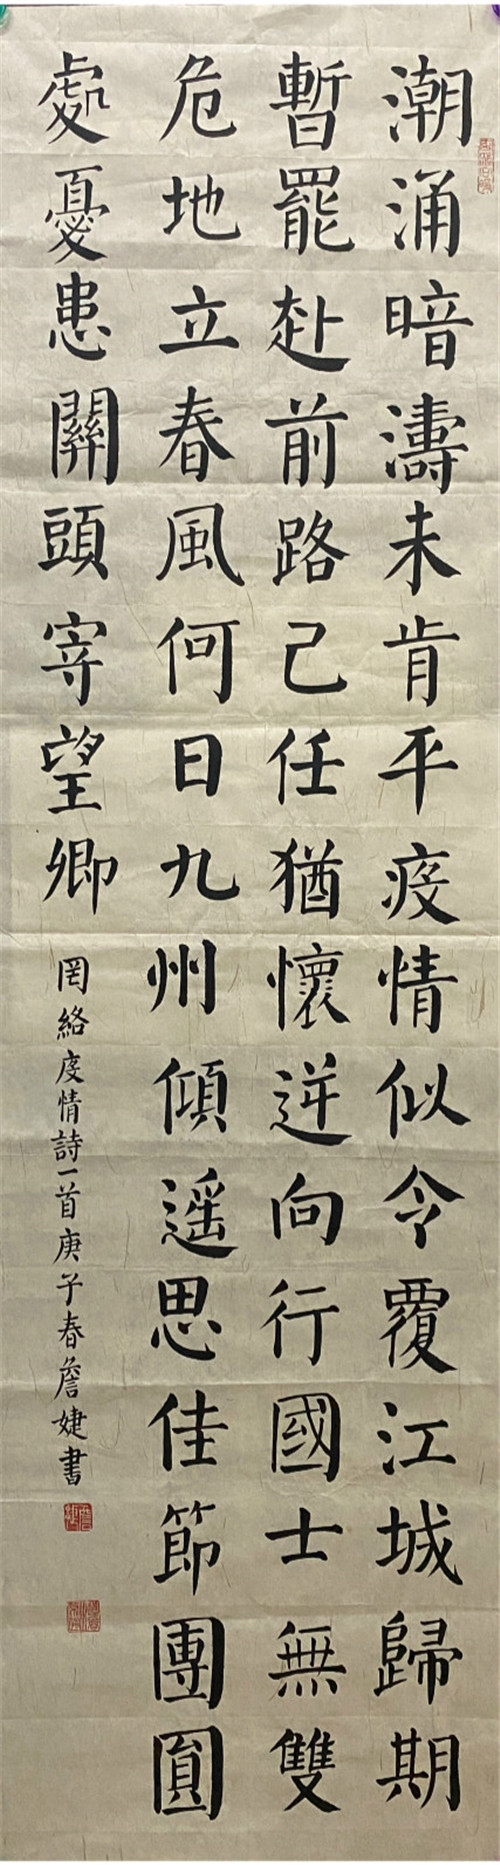 潮涌暗濤未肯平疫情似令覆江城歸期
暫罷赴前路己任猶懷逆向行國士無雙
危地立春風何日九州傾遥思佳節團圓
處憂患關頭寄望卿
罔絡疫情詩一首庚子春詹婕書